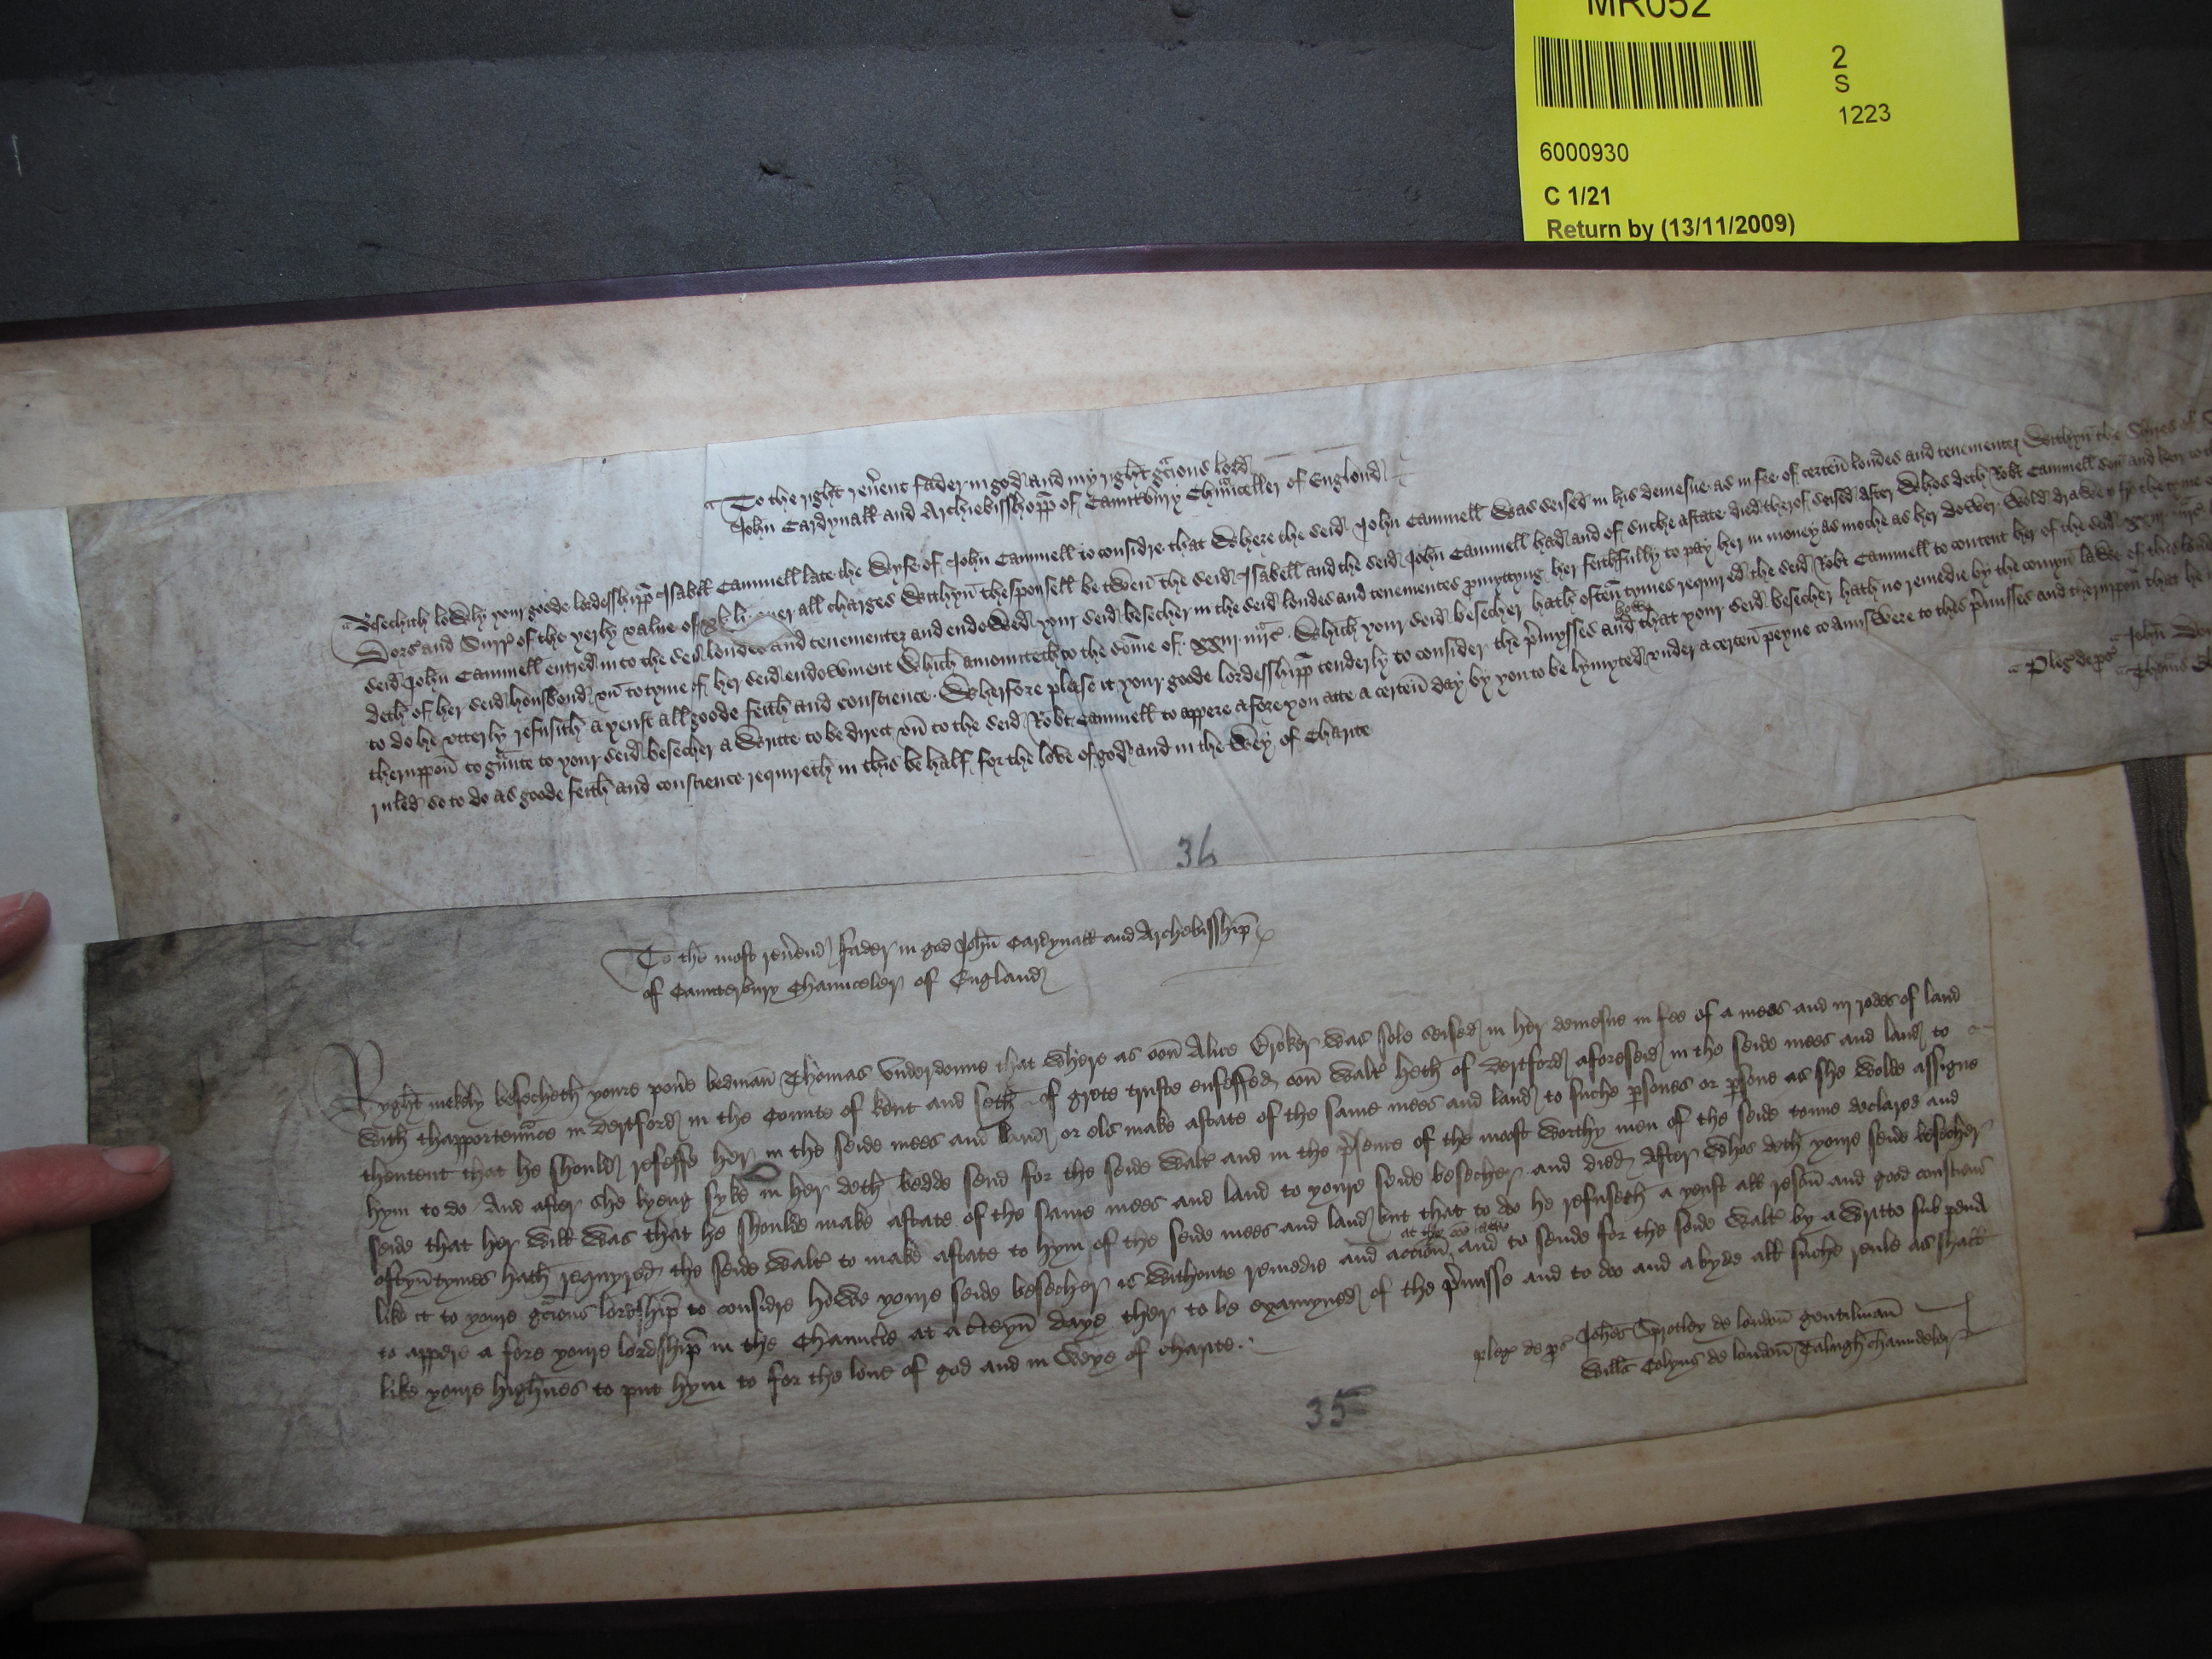 MR052
2
S
1223
6000930
C 1/21
Return by (13/11/2009)
To the right reu'ent fader in god and my right gracious lord
John Cardynall and Archiebisshopp of Caunt'bury Chaunceller of Englond
Besechith lowly your goode lordesshipp Isabell Cammell late the Wyfe of John Cammell to considre that Where the seid John Cammell Was seised in his demesne as in fee of certen londes and tenementes Withyn the Shires of
Dors and of the yerly value of xl li. over all charges Withyn thesponsell be twen the seid Isabell and the seid John Cammell had and of suche astate died therof seised after Whos deth Robt Cammell son and heir to the
seid John Cammell entred in to the seid londes and tenementes and endowed your seid besecher in the seid londes and tenementes promyttyng her feithfully to pay her in money as moche as her dower Wold drawe fro the tyme o
deth of her seid housbond vn to tyme of her seid endowment Which amounteth to the some of Which your seid besecher hath often tymes required the seid Robt Cammell to content her of the seid
to do he vtterly refusith ayenst all goode feith and conscience. Wherfore please it your goode lordesshipp tenderly to consider the p'mysses and how that your seid besecher hath no remedie by the comyn lawe of this lond
theruppon to graunte to your seid besecher a Writte to be direct vn to the seid Robt Cammell to appere afore you atte a certen day by you to be lymyted vnder a certen peyne to answere to this p'misses and theruppon that he
ruled so to do as goode feith and conscience requireth in this be half for the love of god and in the Wey of Charite
Pleg de p's John
Thomas
36
To the most reu'end fader in god John Cardynall and Archebisship
of Caunterbury Chaunceler of England
Ryght mekely besecheth youre pou'e bedman Thomas Vnderdonne that Where as oon Alice Croker Was sole seised in her demesne in fee of a mees and iij rodes of land
With thapportenance in Dertford in the Counte of Kent and soth of grete truste enfeffed oon Walt' Heth of Dertford aforeseid in the seide mees and land to
thentent that he should refeffe her in the seide mees and land or els make astate of the same mees and land to suche p'sones or p'sone as she Wolde assigne
hym to do And after she lyeng syke in her deth bedde send for the seide Walt' and in the p'sence of the moost Worthy men of the seide toune declared and
seide that her Will Was that he shoulde make astate of the same mees and land to youre seide besecher and died After Whos deth youre seide besecher
oftyntymes hath requyred the seide Walt' to make astate to hym of the seide mees and land but that to do he refuseth a yenst all reson and good consciens
like it to youre gracious lordship to considre howe youre seide besecher is Withoute remedie and accion at the co'e lawe and to sende for the seide Walt' by a Writte sub pena
to appere a fore youre lordship in the Chauncie at a c'teyn daye ther to be examyned of the p'misse and to do and abyde all suche reule as shall
like youre highnes to put hym to for the loue of god and in Weye of charite.
pleg de p's Joh'es Sprotley de london gentilman
Will's Colyns de london Talughchaundeler
35